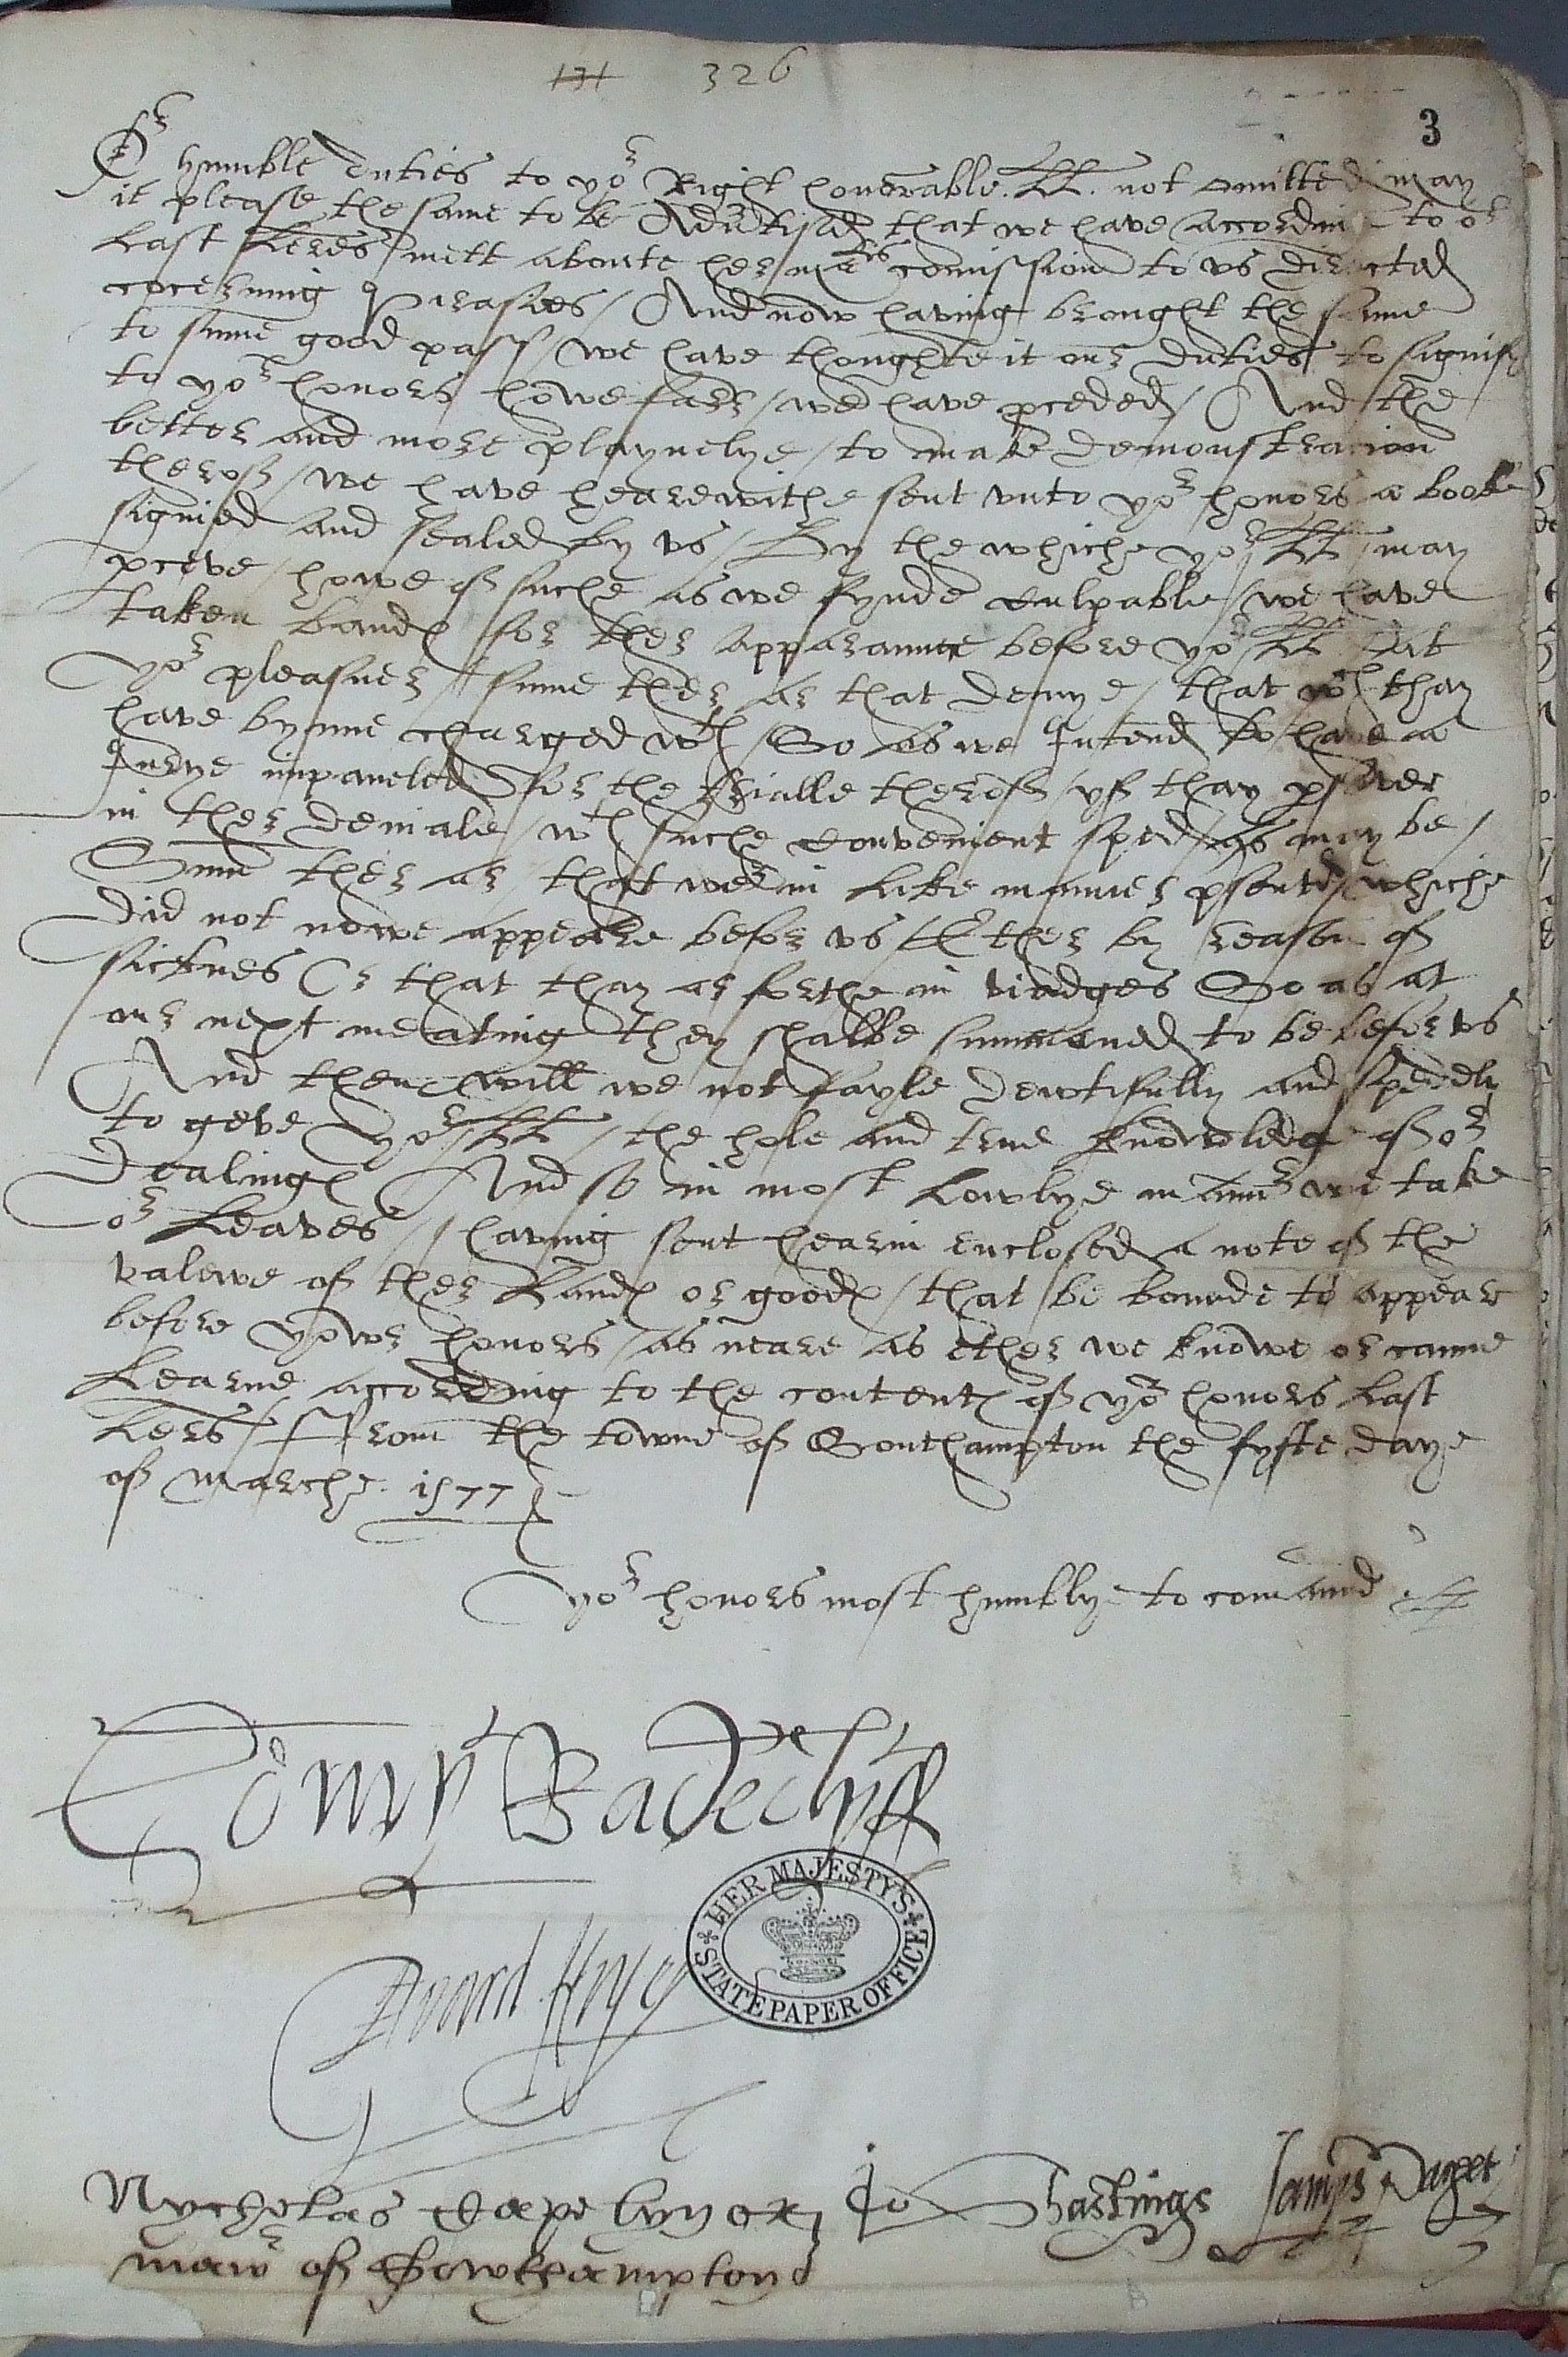 131 326
3
Or humble duties to yor Right honorable LL. not omitted may
it please the same to be Advertised that we have accordinge to or
Last Lers mett aboute her maties comission to us directed
cocerning Pirasies / And now having brought the same
to sume good pass / we have thoughte it our duties to signify
to yor honors howe farr / we have pceded / And the
better and more playnelye / to make demonstracion
therof / we have hearewithe sent unto yor honors a booke
signied and sealed by us / By the whiche yor LL / may
pceve / howe of suche as we fynde culpable / we have
taken bandes for ther apparaunce before yor LL / At
yor pleasuer / sume ther ar that denye / that wch thay
have bynne charged wth / So as we Intend to have a
Jurye impaneled for the trialle therof / yf thay psever
in ther deniale / wth suche convenient sped / as may be /
Sum ther ar that wer in like manner psented / whiche
did not nowe appeare befor us / Ether by reason of
sicknes Or that thay ar forthe in viadges So as at
our next meating they shalbe summoned to be befor us
And then will we not fayle dewtifully and spedely
to geve yor LL / the hole and true knowledge of or
dealinges And so in most Lowlye mannr we take
or Leaves / having sent hearin enclosed a note of the
valewe of ther Landes or goodes / that be bounde to appear
before yowr honors / as neare as ether we knowe or canne
Learne according to the contentes of yor honors Last
Lers / From the towne of Southampton the fyfte daye
of Marche. 1577
yor honors most humblye to comaund
Radeclyff
HER MAJESTY'S STATE PAPER OFFICE
Nycholas Capelyn
mawr of Sowthampton
Jo hastings
Jamys Paget